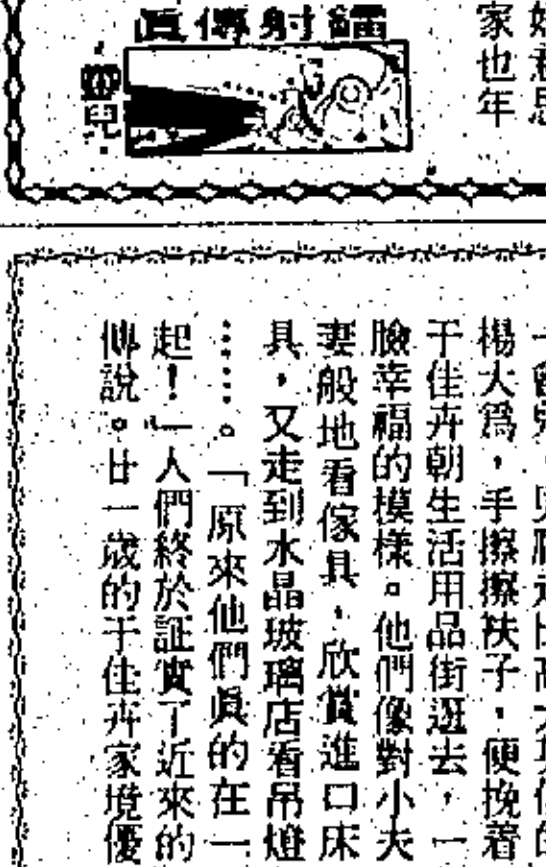 意思
家也年
鐳射傳眞
楊大爲，手擦擦袂子，便挽着
于佳卉朝生活用品街逛去，一
臉幸福的模樣。他們像對小夫
妻般地看傢具，欣賞進口床
具，又走到水晶玻璃店看吊燈
……。「原來他們眞的在一
起！」人們終於証實了近來的
傳說。廿一歲的于佳卉家境優